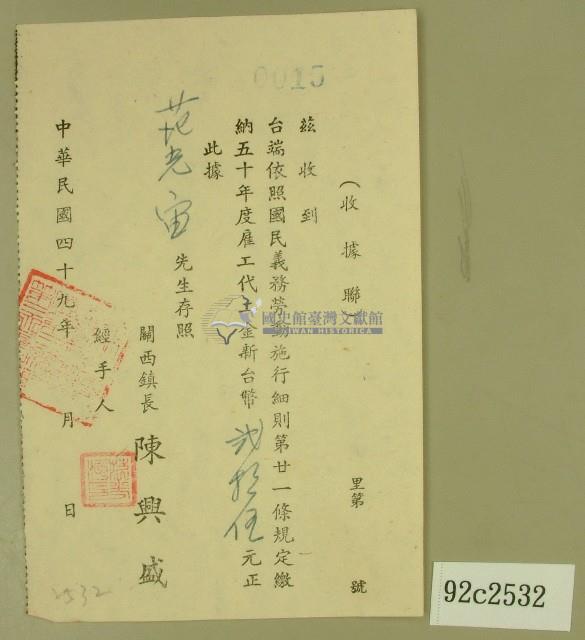 0015
(收據聯)
里第 號
茲收到
台端依照國民義務勞動施行細則第廿一條規定繳
納五十年度雇工代工金新台幣貳拾伍元正
此據
范光宙先生存照
關西鎮長 陳興盛
經手人
中華民國四十九年 月 日
2532
國史館臺灣文獻館
TAIWAN HISTORICA
92c2532